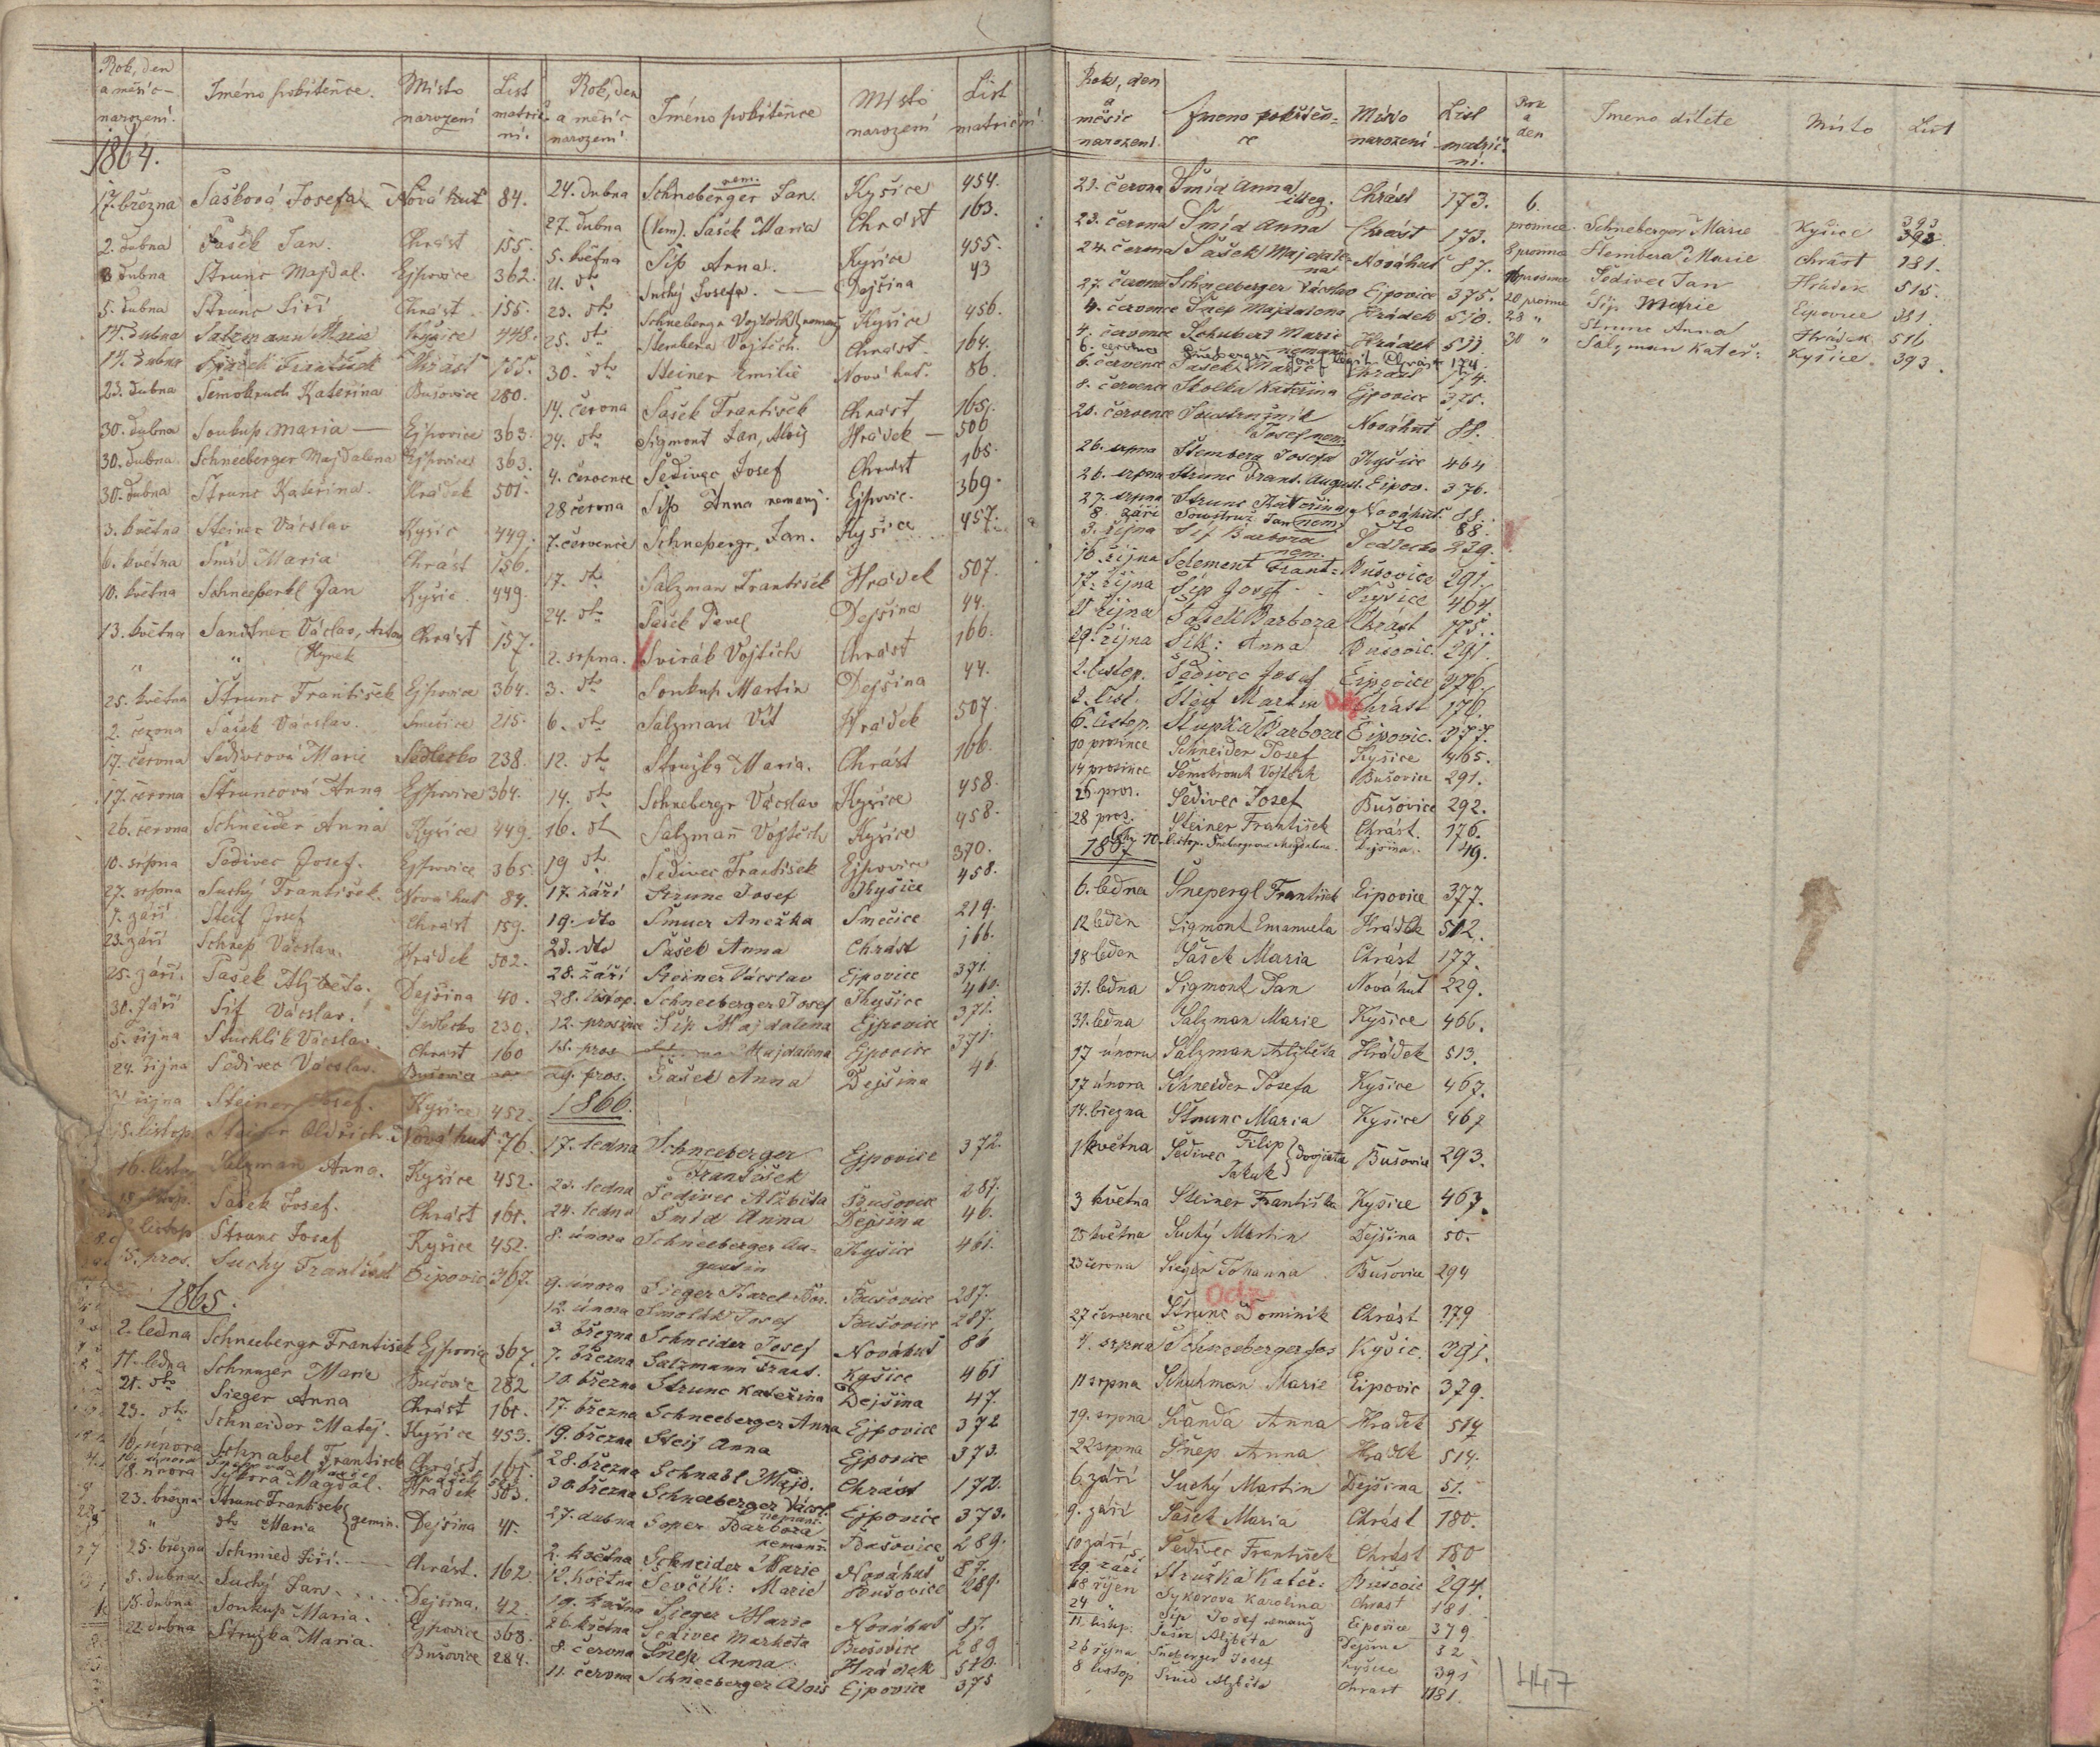 Rok, den a měsíc narození. Jméno pokřtěnce. Místo narození List matriční.
1864.
17. března Sašková Josefa Nová huť 84.
2. dubna Sašek Jan. Chrást 155.
3 dubna Strunc Majdal. Ejpovice 362.
5. dubna Strunc Jiří Chrást 155.
14. dubna Salzmann Maria Kyšice 448.
14. dubna František Chrást 155.
23. dubna Semobruch Kateřina Bušovice 280.
30. dubna Soukup Maria Ejpovice 363.
30. dubna Schneeberger Majdalena Ejpovice 363.
30. dubna Strunc Kateřina. Hrádek 501.
3. května Steiner Václav Kyšic 449.
6. května Šmíd Maria Chrást 156.
10. května Schneepergl Jan Kyšic 449.
13. května Sandtner Václav, Anton Hynek Chrást 157.
" "
25. května Štrunc František Ejpovice 364.
2. června Sašek Václav. Smečice 215.
17. června Sedivcová Marie Sedlecko 238.
17. června Štruncová Anna Ejpovice 364.
26. června Schneider Anna Kyšice 449.
10. srpna Šedivec Josef. Ejpovice 365.
27. srpna Suchý František. Nová huť 84.
7. září Steif Josef Chrást 159.
23. září Schnep Václav. Hrádek 502.
25. září. Sašek Alžběta. Dejšina 40.
30. září Šíf Václav. Sedlecko 230.
5. října Stuchlík Václav. Chrást 160
24. října Sedivec Václav. Bušovice
31 října Steiner Josef. Kyšice 452.
15. listop. Steiner Oldřich. Nová huť 76.
16. listop. Salzman Anna. Kyšice 452.
18. listop. Sašek Josef. Chrást 161.
listop Strunc Josef Kyšice 452.
5. pros. Suchy František Eipovic 367.
1865.
2. ledna Schneebergr František Ejpovic 367.
11. ledna Schmuzer Marie Bušovic 282
21. dto Sieger Anna Chrást 161.
23. dto Schneider Matěj. Kyšice 453.
16. února Schnabel František Chrást 161.
18. února Sýkora Magdal. Hrádek 503.
23. března Strunc František } gemin. Dejšina 41.
" dto Maria
25. března Schmied Jiří. Chrást. 162
5. dubna Suchý Jan Dejšina. 42
18. dubna Soukup Maria. Ejpovice 368.
22 dubna Stružka Maria. Bušovice 284.
Rok, den a měsíc narození Jméno pokřtěnce Místo narození List matriční.
24. dubna Schneberger Jan. nem. Kyšice 454.
27. dubna (lem). Sašek Maria Chrást 163.
5. května Šíp Anna. Kyšice 455.
21. dto Suchý Josefa. Dejšina 43
23. dto Schnebergr Vojtěch (nemanž Kyšice 456.
25. dto Stembera Vojtěch. Chrást. 164.
30. dto Steiner Emilie Nová huť. 86.
14. června Sašek František Chrást 165.
24. dto Sigmont Jan, Alois Hrádek 506
4. července Šedivec Josef Chrást 165.
28 června Šíp Anna nemanž. Ejpovic. 369.
7. července Schnepergr, Jan. Kyšice 457.
17. dto Salzman František Hrádek 507.
24. dto Sašek Pavel Dejšina 44.
2. srpna. Svirák Vojtěch Chrást 166.
3. dto Soukup Martin Dejšina 44.
6. dto Salzman Vít Hrádek 507.
12. dto Stružka Maria. Chrást 166.
14. dto Schnebergr Václav Kyšice 458.
16. dt Salzman Vojtěch Kyšice 458.
19 dto Šedivec František Ejpovice 370.
17. září Strunc Josef Kyšice 458.
19. dto Šmucr Anežka Smečice 219.
23. dto Sašek Anna Chrást 166.
28. září Steiner Václav Ejpovice 371.
28. listop. Schneeberger Josef Kyšice 460.
12. prosince Šíp Majdalena Ejpovice 371.
12. pros Majdalena Ejpovice 371.
29. pros. Sašek Anna Dejšina 46.
1866.
17. ledna Schneeberger František Ejpovice 372.
23. ledna Šedivec Alžběta Bušovice 287.
24. ledna Šmíd Anna Dejšina 46.
8. února Schneeberger Augustin Kyšice 461.
9. února Sieger Karel Bor. Bušovice 287.
12. února Smolák Josef Bušovice 287.
3. března Schneider Josef Nováhuť 86
7. března Salzmann Frant. Kyšice 461
10. března Strunc Kateřina Dejšina 47.
17. března Schneeberger Anna Ejpovice 372
19. března Steif Anna Ejpovice 373.
28. března Schnabl Majd. Chrást 172.
30. března Schneeberger Václ. nemanž. Ejpovice 373.
27. dubna Soper Barbora nemanž. Bušovice 289.
2. května Schneider Marie Nováhuť 87.
12. Května Ševčík: Marie Bušovice 289.
19. května Sieger Marie Nováhuť 87.
26. května Sedivec Markéta Bušovice 289
8. června Šnep Anna. Hrádek 510.
11. června Schneeberger Alois Ejpovice 375
Rok, den a měsíc narození. Jméno pokřtěnce Místo narození List matriční.
21. června Šmíd Anna illeg. Chrást 173.
23. června Šmíd Anna Chrást 173.
24. června Sašek Majdalena Nováhuť 87.
27. června Schneeberger Václav Ejpovice 375.
4. července Šnep Majdalena Hrádek 510.
4. července Schubert Marie nemanž. Hrádek 511.
6. července Šneberger Josef Chrást 174.
6. července Sašek Marie Chrást 174.
8. července Skolka Kateřina Ejpovice 375.
20. července Soustružník Josef nem. Nováhuť 88.
26. srpna Štemberg Josefa Kyšice 464
26. srpna Strunc Frant. August. Eipov. 376.
27. srpna Strunc Kateřina Nováhuť 88.
8. září Soustruž Jan nem. dto 88.
3. října Šíf Barbora Sedlecko 239.
16. října Selement Frant. nem. Bušovice 291.
17. října Šíp Josef Kyšice 464.
21 října Sašek Barbora Chrást 175.
29. října Šik: Anna Bušovic. 291.
2. listop. Šedivec Josef Eipovice 376.
2. list. Steif Martin Chrást 176.
6. listop. Stupka Barbora Eipovic. 377.
10 prosince Schneider Josef Kyšice 465.
14 prosince Semobrouh Vojtěch Bušovice 291.
26. pros. Sedivec Josef Bušovice 292.
28 pros. Steiner František Chrást. 176.
10. listop. Magdalena. Dejšina. 49.
1867
6. ledna Šnepergl František Eipovice 377.
12 leden Sigmont Emanuela Hrádek 512.
18 leden Sašek Maria Chrást 177.
31. ledna Sigmont Jan Nováhuť 229.
31. ledna Salzman Marie Kyšice 466.
17 února Salzman Alžběta Hrádek 513.
17 února Schneider Josefa Kyšice 467.
14. března Strunc Maria Kyšice 467
1 května Šedivec Filip Jakub } dvojčata Bušovice 293.
3 května Steiner Františka Kyšice 467.
25 května Suchý Martin Dejšina 50.
23 června Sieger Johanna Bušovice 294
27 července Strunc Dominik Chrást 179
4. srpna Schneeberger Jos Kyšic. 391.
11 srpna Schuhman Marie Eipovic 379.
19. srpna Švanda Anna Hradek 514
22 srpna Šnep Anna Hradek 514.
6. září Suchý Martin Dejšina 51.
9. září Sašek Maria Chrást 180.
10 září Šedivec František Chrást 180
29. září Stružka Kateř: Bušovic 294.
18 říjen Sykorova Karolina Chrast 181.
24 " Šíp Josef nemanž Eipovice 379
11. listop. Sašek Alžběta Dejšina 52
26 října Šneberger Josef Kyšice 391
8 listop Šmíd Alžběta Chrast 181.
Rok a den Jmeno dítěte Místo List
6. prosince Schneberger Marie Kyšice 393
8 prosince Štembera Marie Chrást 181.
16 prosince Šedivec Jan Hrádek 515.
20 prosince Šíp Marie Eipovice 381
28 " Strunc Anna Hrádek 516
30 " Salzman Kateř: Kyšice 393.
447